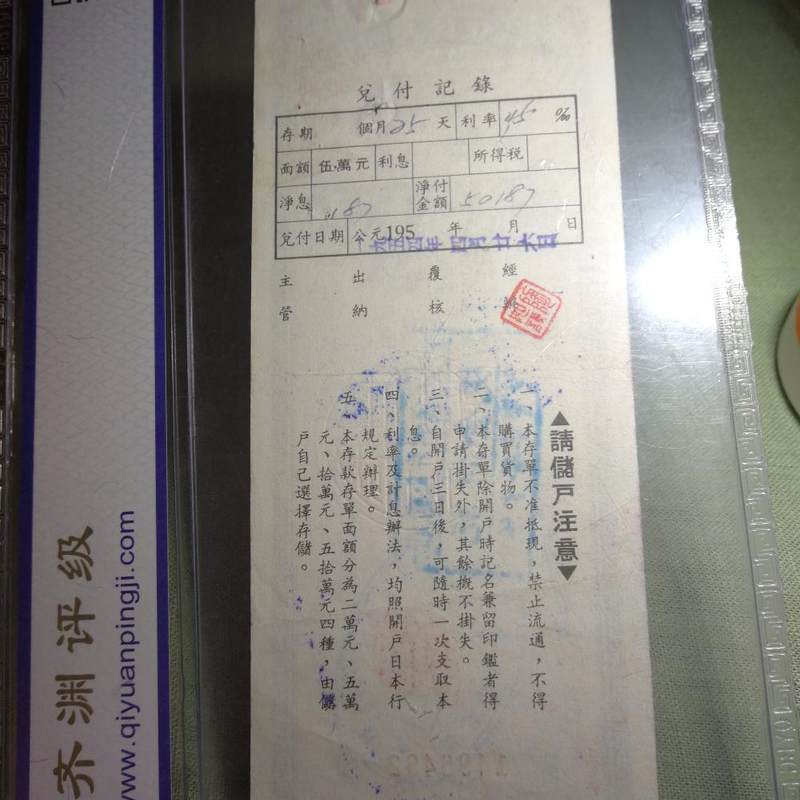 兌付記錄
存期 個月25天 利率 45 ‰
面額 伍萬元 利息 所得税
淨息 187 淨付金額 50187
兌付日期 公元195 年 月 日
一九五四年 四月廿六日
主管 出納 覆核 經辦
▲請儲戶注意▼
一、本存單不准抵現，禁止流通，不得
購買貨物。
二、本存單除開戶時記名兼留印鑑者得
申請掛失外，其餘概不掛失。
三、自開戶三日後，可隨時一次支取本
息。
四、利率及計息辦法，均照開戶日本行
規定辦理。
五、本存款存單面額分為二萬元、五萬
元、拾萬元、五拾萬元四種，由儲
戶自己選擇存儲。
齐渊评级
www.qiyuanpingji.com